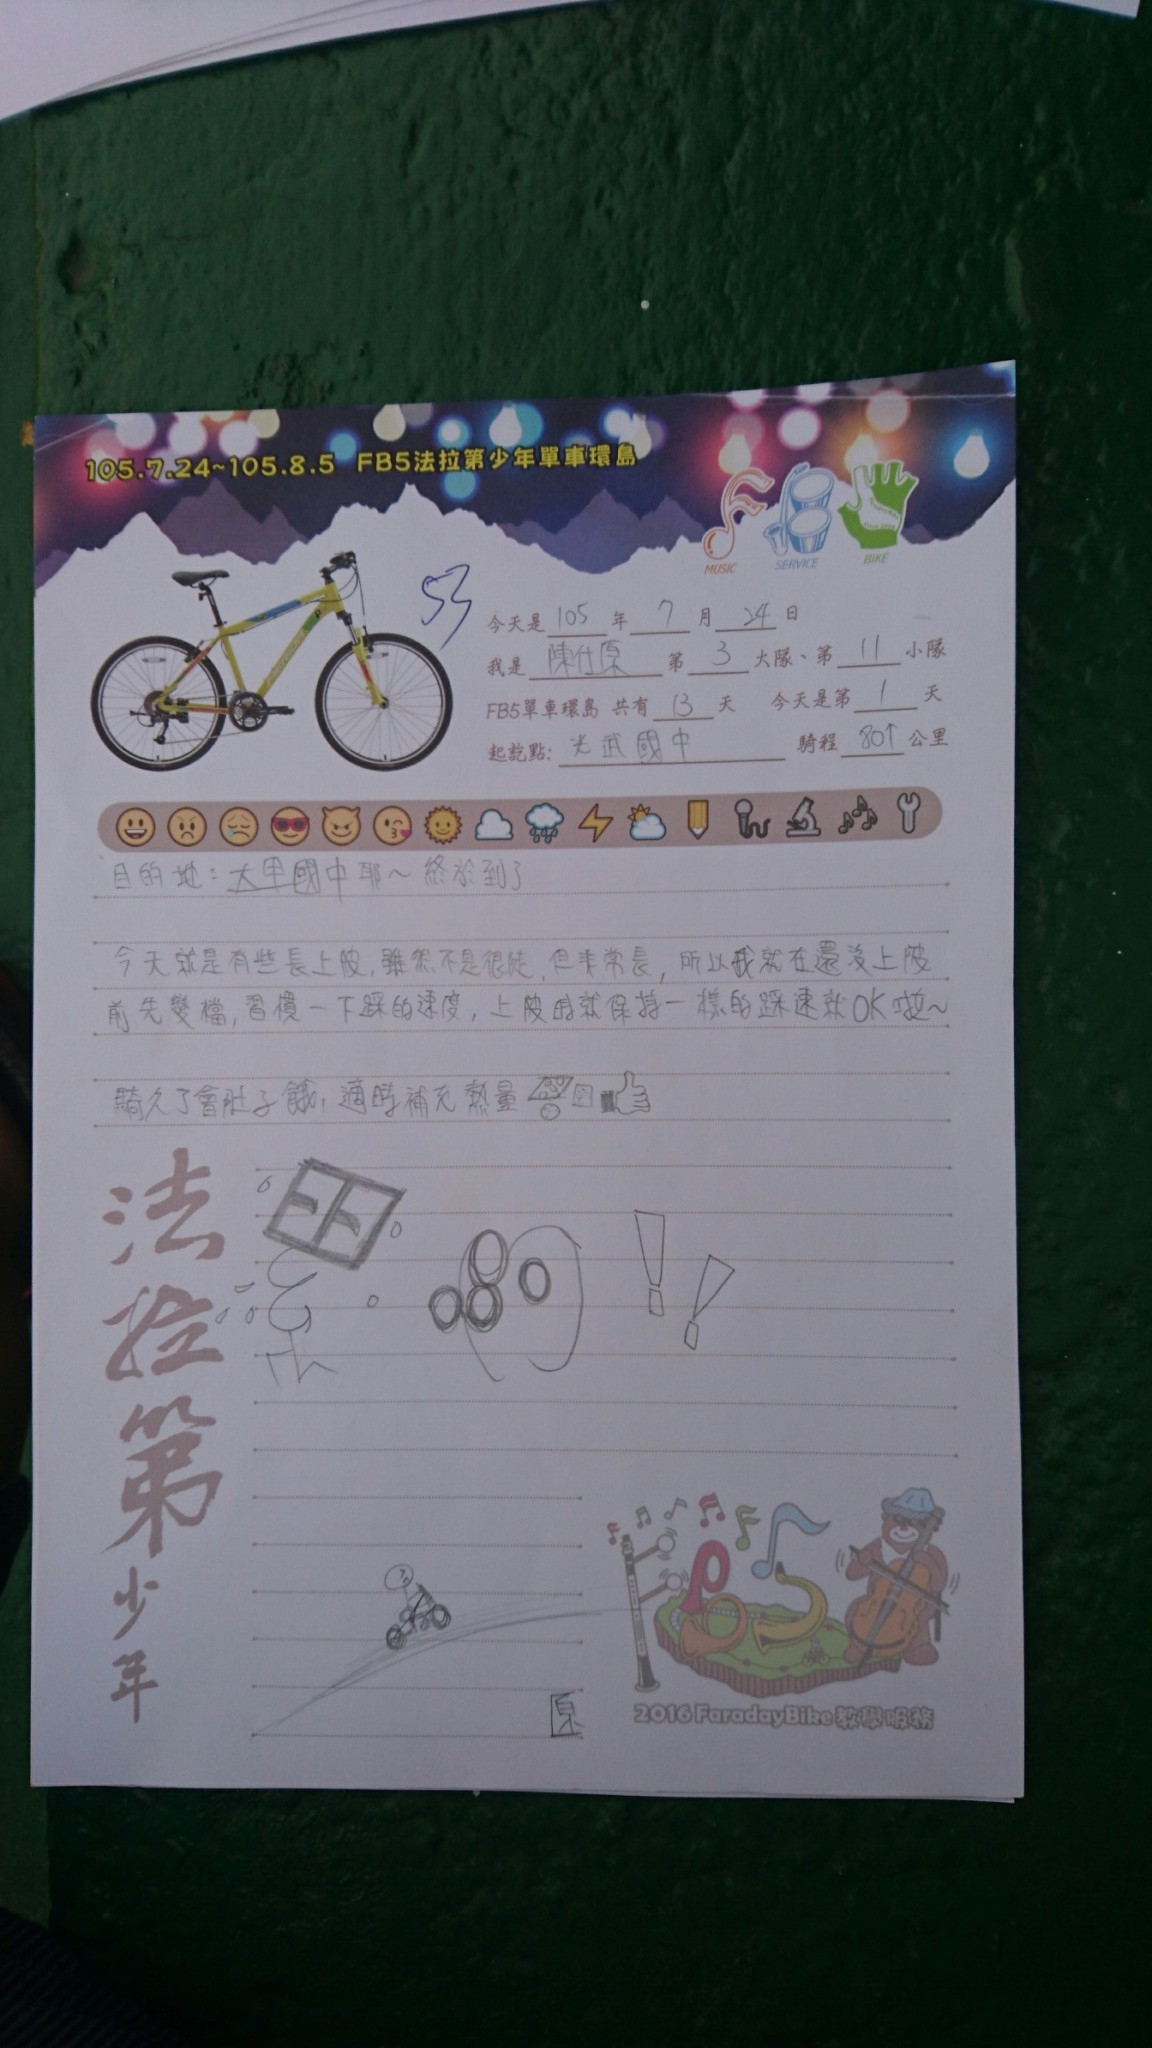 105.7.24~105.8.5 FB5法拉第少年單車環島
MUSIC SERVICE BIKE
53
今天是 105 年 7 月 24 日
我是 陳仕原 第 3 大隊、第 11 小隊
FB5單車環島 共有 13 天 今天是第 1 天
起訖點: 光武國中 騎程 80↑ 公里
目的地:大甲國中耶~終於到了
今天就是有些長上陂,雖然不是很陡,但非常長,所以我就在還沒上陂
前先變檔,習慣一下踩的速度,上陂時就保持一樣的踩速就OK啦~
騎久了會肚子餓,適時補充熱量
法拉第少年
!!
原
2016 FaradayBike教學服務